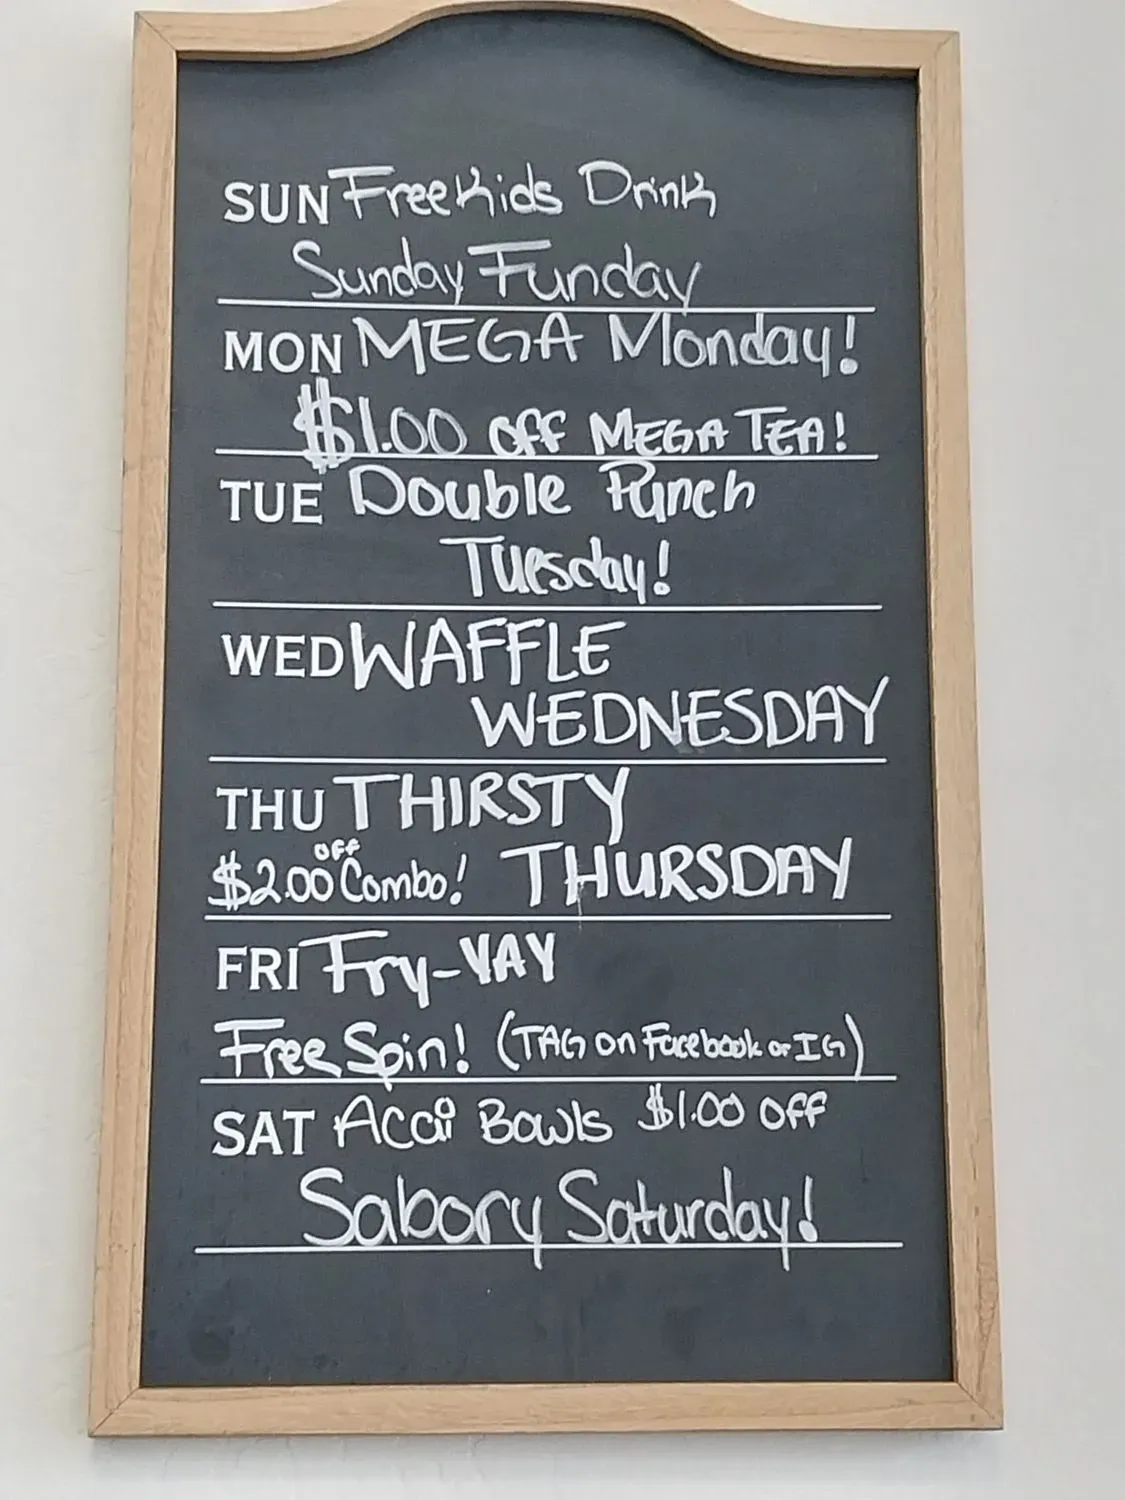 SUN Free Kids Drink
Sunday Funday
MON MEGA Monday!
$1.00 OFF MEGA TEA!
TUE Double Punch
Tuesday!
WED WAFFLE
WEDNESDAY
THU THIRSTY
$2.00 OFF Combo! THURSDAY
FRI Fry-YAY
Free Spin! (TAG on Facebook or IG)
SAT Acai Bowls $1.00 OFF
Sabory Saturday!